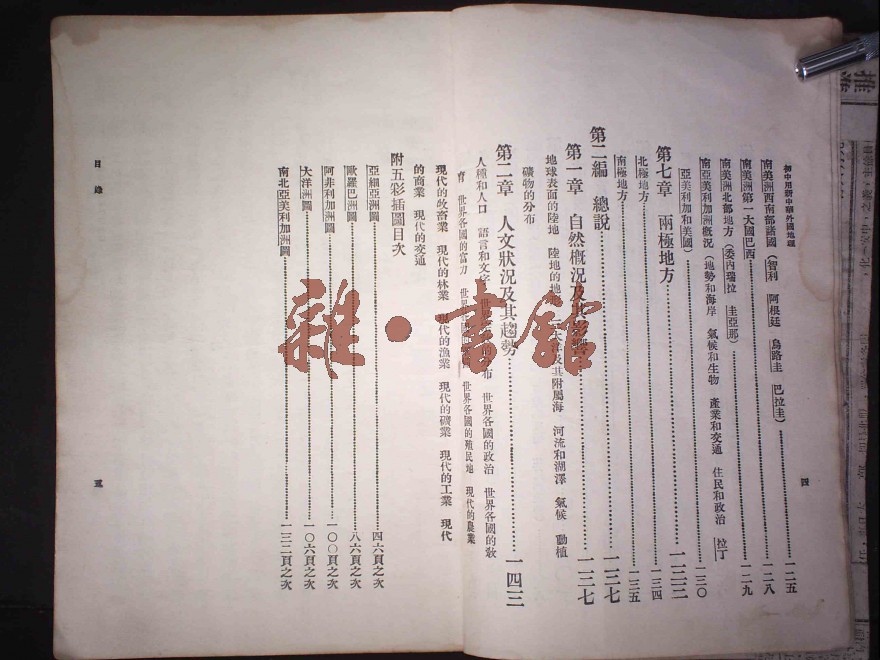 初中用新中華外國地理
四
南美洲西南部諸國(智利 阿根廷 烏路圭 巴拉圭)……一二五
南美洲第一大國巴西……一二八
南美洲北部地方(委內瑞拉 圭亞那)……一二九
南亞美利加洲概況(地勢和海岸 氣候和生物 產業和交通 住民和政治 拉丁
亞美利加和美國)……一三〇
第七章 兩極地方……一三三
北極地方……一三四
南極地方……一三五
第二編 總說……一三七
第一章 自然概況及其影響……一三七
地球表面的陸地 陸地的地 大洋及其附屬海 河流和湖澤 氣候 動植
礦物的分布
第二章 人文狀況及其趨勢……一四三
人種和人口 語言和文字 世界 布 世界各國的政治 世界各國的教
育 世界各國的富力 世界 世界各國的殖民地 現代的農業
現代的牧畜業 現代的林業 現代的漁業 現代的礦業 現代的工業 現代
的商業 現代的交通
附五彩插圖目次
亞細亞洲圖……四六頁之次
歐羅巴洲圖……八六頁之次
阿非利加洲圖……一〇〇頁之次
大洋洲圖……一〇六頁之次
南北亞美利加洲圖……一三二頁之次
目錄
五
雜·書館